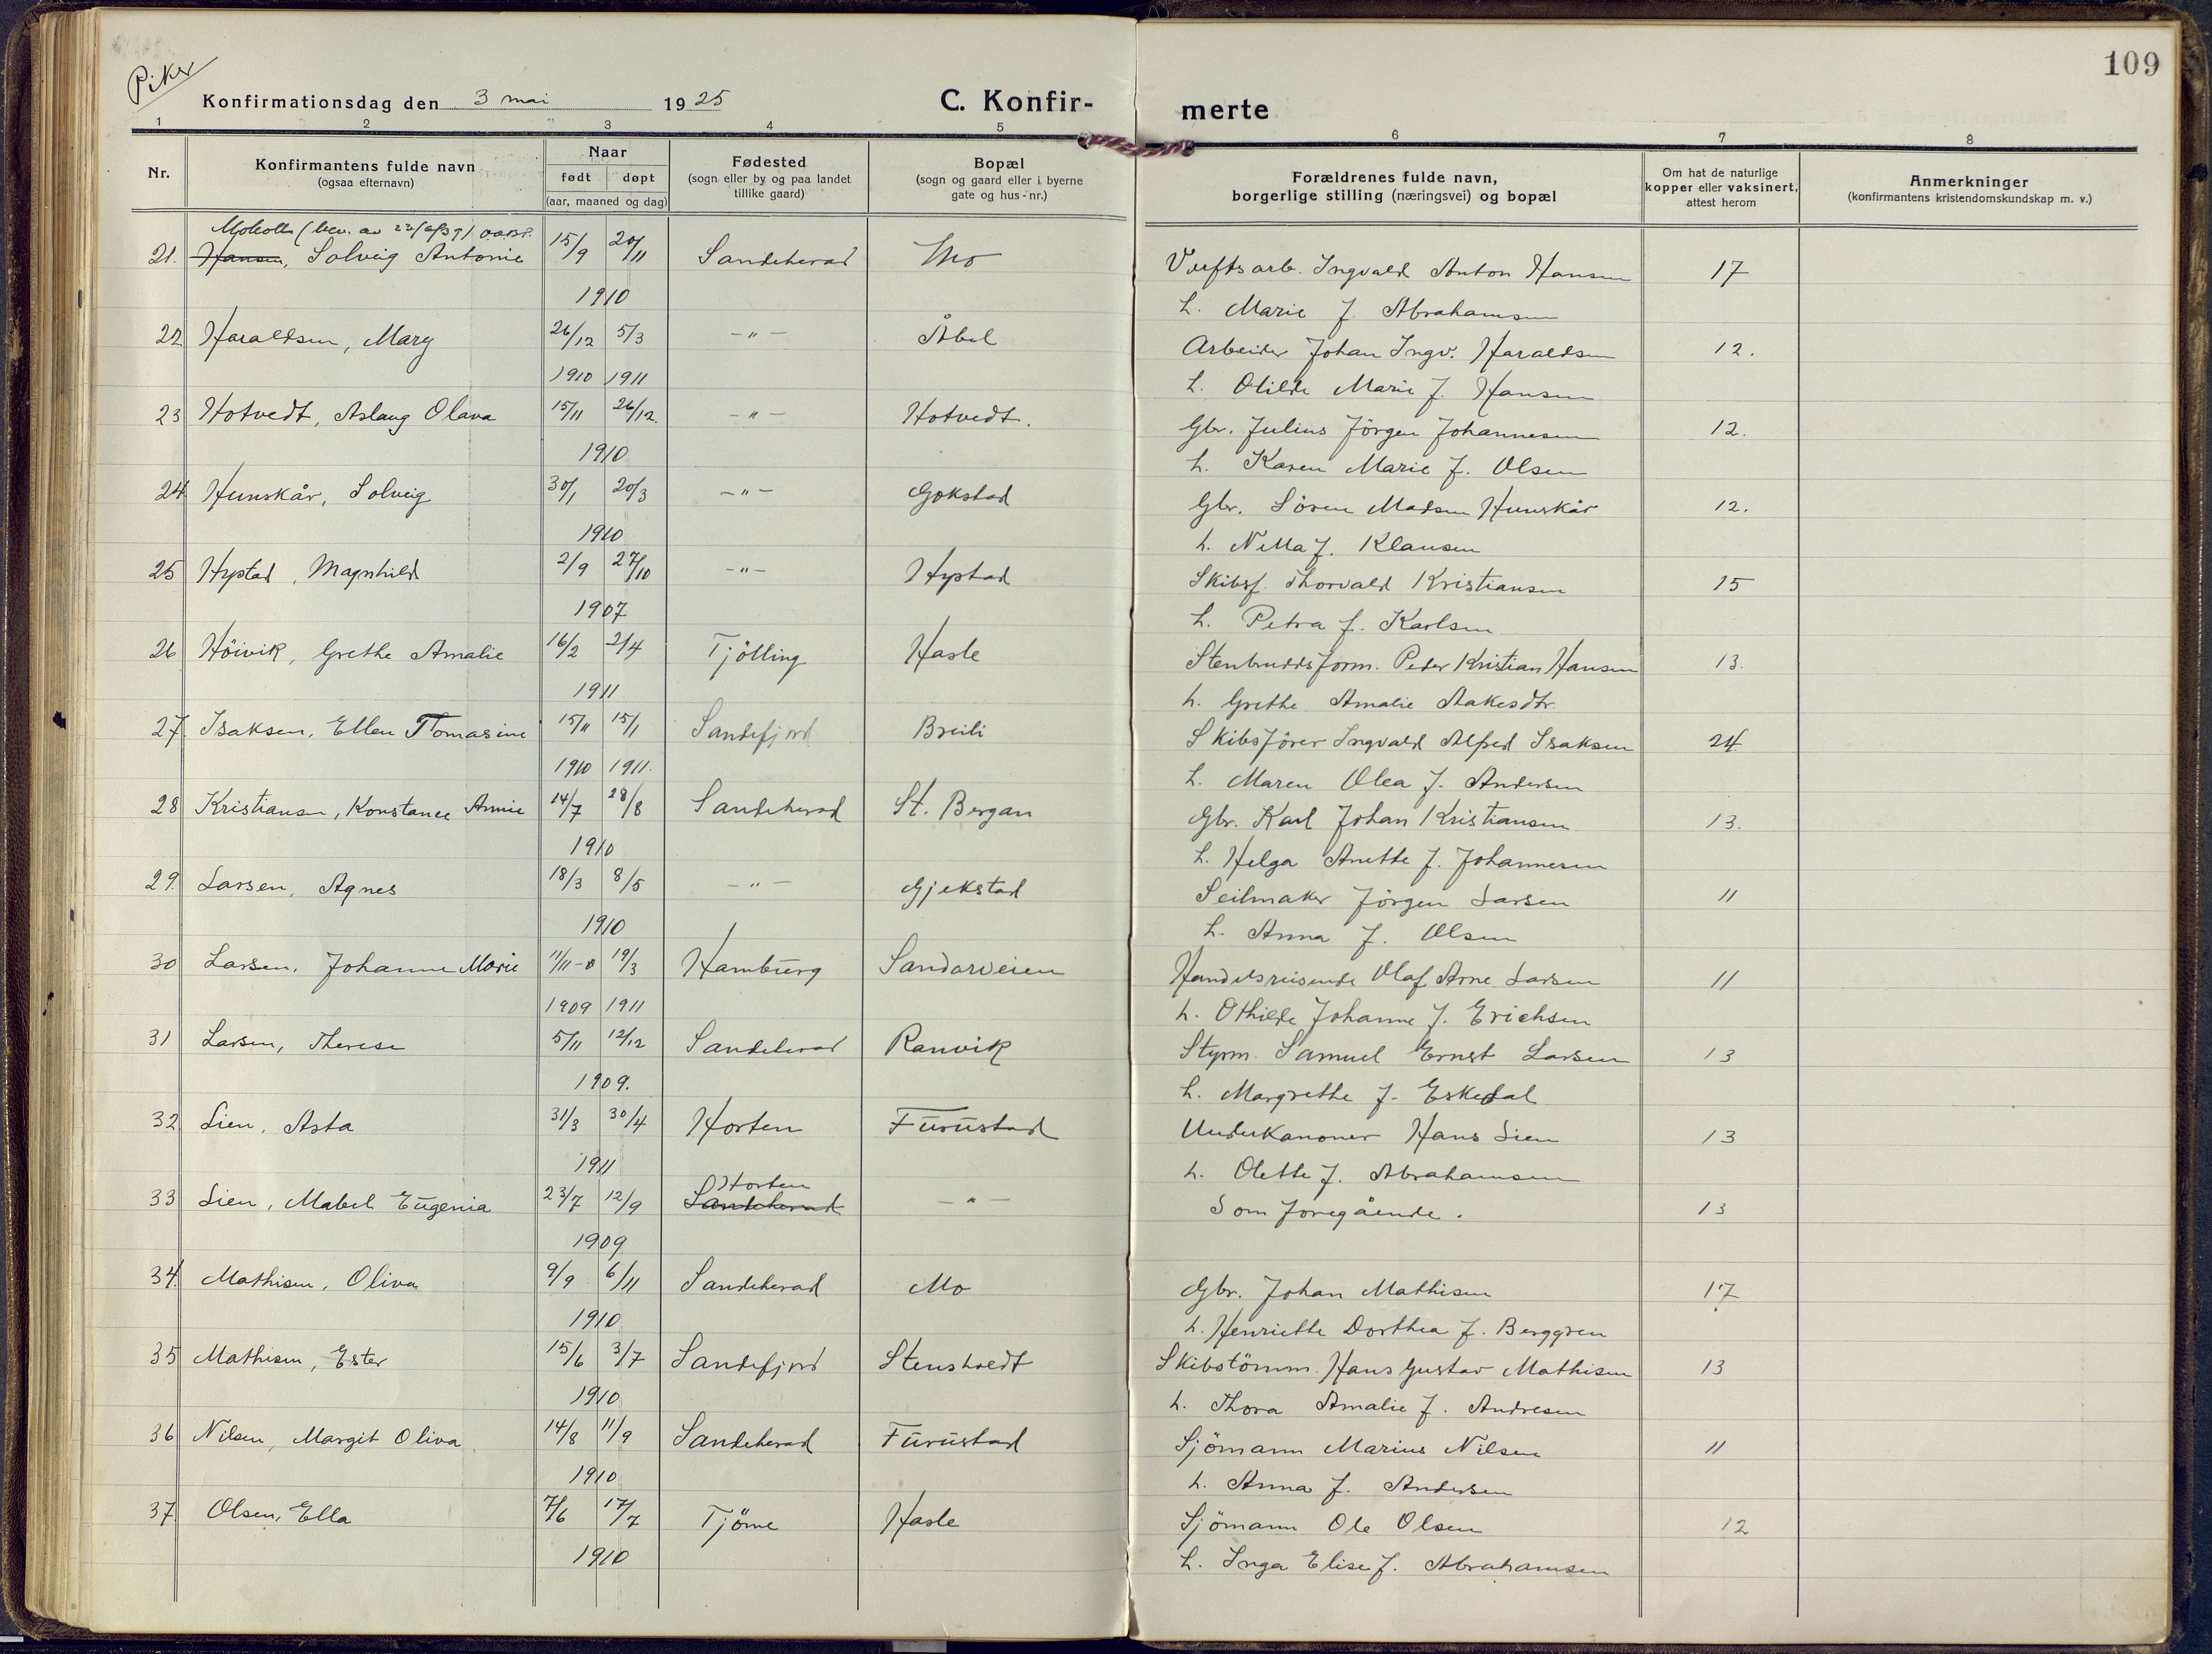 109
Piker
Konfirmationsdag den 3 mai 1925 C. Konfir- merte
1 2 3 4 5 6 7 8
Nr. Konfirmantens fulde navn (ogsaa efternavn)
Naar født døpt (aar, maaned og dag)
Fødested (sogn eller by og paa landet tillike gaard)
Bopæl (sogn og gaard eller i byerne gate og hus-nr.)
Forældrenes fulde navn, borgerlige stilling (næringsvei) og bopæl
Om hat de naturlige kopper eller vaksinert, attest herom
Anmerkninger (konfirmantens kristendomskundskap m. v.)
(bev. av
21. Hansen, Solveig Antonie 15/9 20/11 Sandeherad Mo Verftsarb. Ingvald Anton Hansen 17
1910 h. Marie f. Abrahamsen
22 Haraldsen, Mary 26/12 5/3 -"- Åbol Arbeider Johan Ingv. Haraldsen 12.
1910 1911 h. Otilde Marie f. Hansen
23 Hotvedt, Aslaug Olava 15/11 26/12. -"- Hotvedt. Gbr. Julius Jörgen Johannesen 12.
1910 h. Karen Marie f. Olsen
24 Hunskår, Solveig 30/1 20/3 -"- Gokstad Gbr. Sören Madsen Hunskår 12.
1910 h. Nella f. Klausen
25 Hystad, Magnhild 2/9 27/10 -"- Hystad Skibsf. Thorvald Kristiansen 15
1907 h. Petra f. Karlsen
26 Höivik, Grethe Amalie 16/2 2/4 Tjölling Hasle Stenbruddsform. Peder Kristian Hansen 13.
1911 h. Grethe Amalie Aakesdtr.
27. Isaksen, Ellen Tomasine 15/11 15/1 Sandefjord Breili Skibsförer Ingvald Alfred Isaksen 24
1910 1911. h. Maren Olea f. Andersen
28 Kristiansen, Konstance Annie 14/7 28/8 Sandeherad St. Bergan Gbr. Karl Johan Kristiansen 13.
1910 h. Helga Anette f. Johannesen
29. Larsen, Agnes 18/3 8/5 -"- Gjekstad Seilmaker Jörgen Larsen 11
1910 h. Anna f. Olsen
30 Larsen, Johanne Marie 11/11 19/3 Hamburg Sandarveien Handelsreisende Olaf Arne Larsen 11
1909 1911 h. Othilde Johanne f. Erichsen
31 Larsen, Therese 5/11 12/12 Sandeherad Ranvik Styrm. Samuel Ernst Larsen 13
1909. h. Margrethe f. Eskedal
32 Lien, Asta 31/3 30/4 Horten Furustad Underkanoner Hans Lien 13
1911 h. Olette f. Abrahamsen
Horten
33 Lien, Mabel Eugenia 23/7 12/9 Sandeherad -"- Som foregående. 13
1909
34. Mathisen, Oliva 9/9 6/11 Sandeherad Mo Gbr. Johan Mathisen 17
1910 h. Henriette Dorthea f. Berggren
35 Mathisen, Ester 15/6 3/7 Sandefjord Stensholdt Skibstömm. Hans Gustav Mathisen 13
1910 h. Thora Amalie f. Andresen
36 Nilsen, Margit Oliva 14/8 11/9 Sandeherad Furustad Sjömann Marius Nilsen 11
1910 h. Anna f. Andersen
37. Olsen, Ella 7/6 17/7 Tjöme Hasle Sjömann Ole Olsen 12
1910 h. Inga Elise f. Abrahamsen